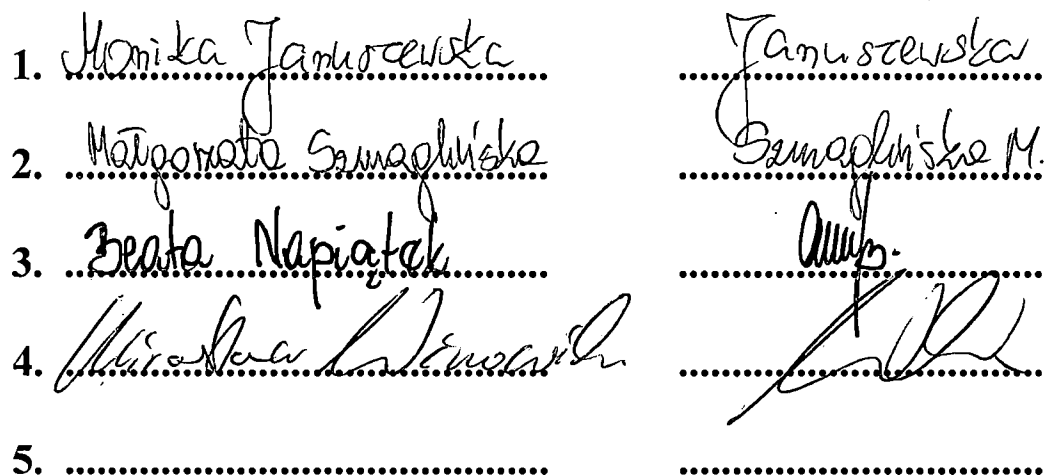 1. Monika Januszewska Januszewska
2. Małgorzata Szmaglińska Szmaglińska M.
3. Beata Napiątek
4. Mirosława
5.